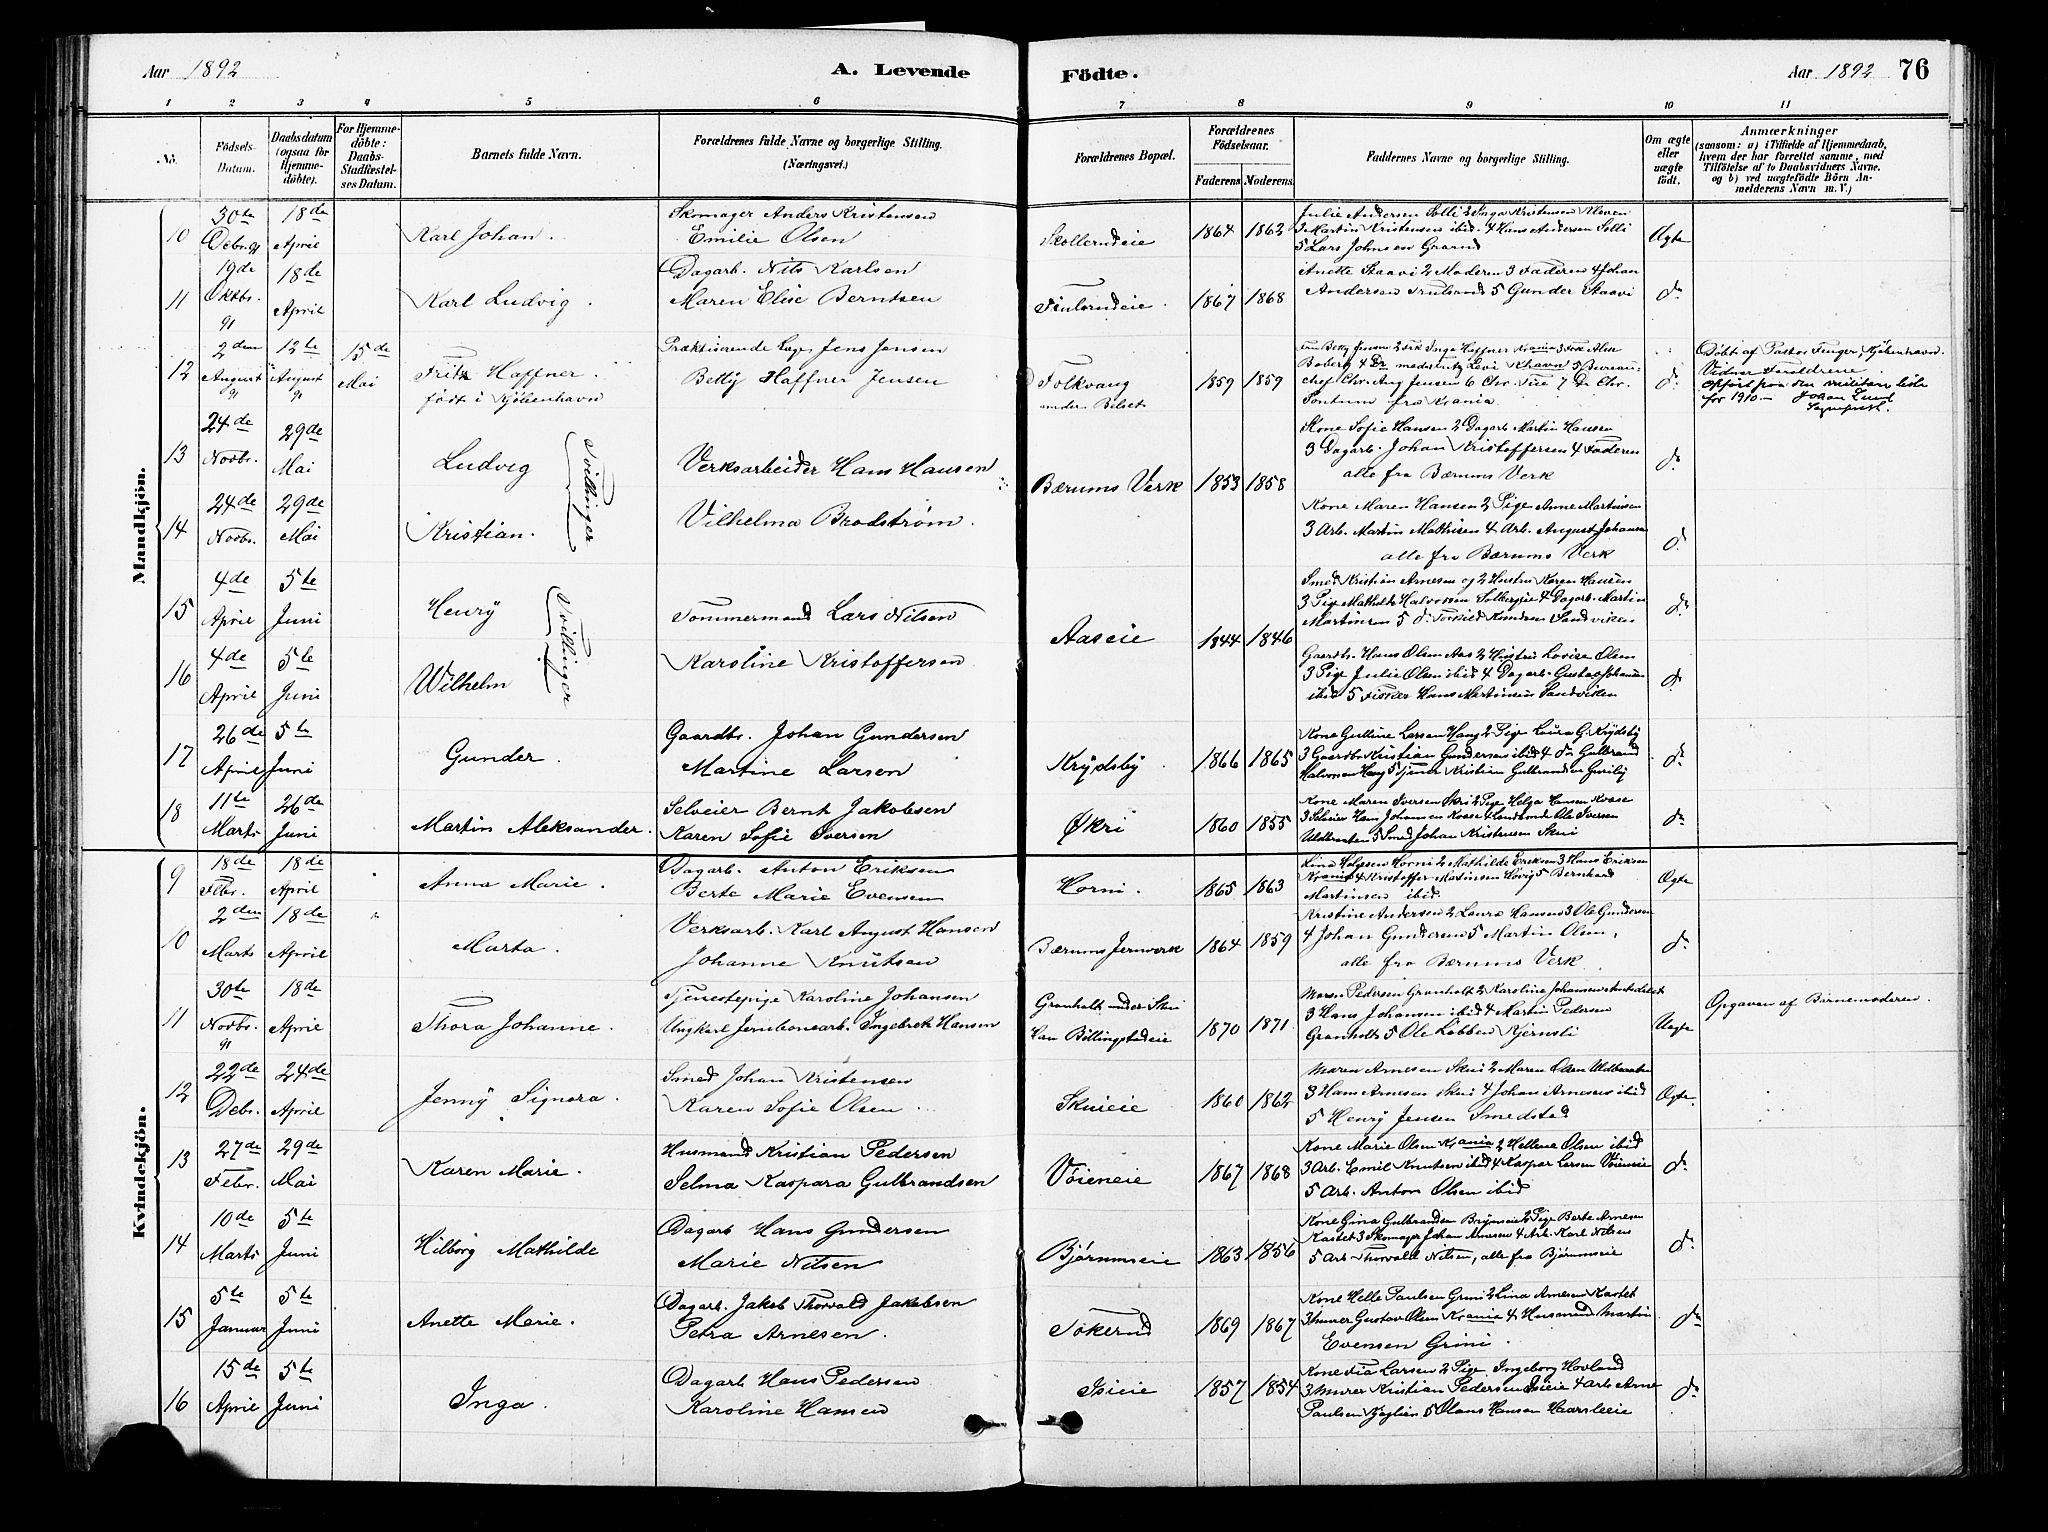 Aar 1892
A. Levende
Födte.
Aar 1892
76
1 2 3 4 5 6 7 8 9 10 11
No.
Födsels-Datum.
Daabsdatum (ogsaa for Hjemmedöbte).
For Hjemmedöbte: Daabs-Stadfæstelses Datum.
Barnets fulde Navn.
Forældrenes fulde Navne og borgerlige Stilling. (Næringsvei.)
Forældrenes Bopæl.
Forældrenes Födselsaar.
Faderens Moderens.
Faddernes Navne og borgerlige Stilling.
Om ægte eller uægte födt.
Anmærkninger
(saasom: a) i Tilfælde af Hjemmedaab, hvem der har forrettet samme, med Tilföielse af to Daabsvidners Navne, og b) ved uægtefödte Börn Anmelderens Navn m. V.)
Mandkjön.
10 30te Debr. 91 18de April
Karl Johan.
Skomager Anders Kristensen
Emilie Olsen
1864 1862
Julie Andersen Solli 2 Inga Kristensen
3 Martin Kristensen ibid. 4 Hans Andersen Solli
5 Lars Johnsen
11 19de Oktbr. 91 18de April
Karl Ludvig.
Dagarb. Nils Karlsen
Maren Elise Berntsen
1867 1868
Anette Staavi 2 Moderen 3 Faderen 4 Johan
Andersen 5 Gunder Staavi
do
12 2den August 91 12te August 91 15de Mai
Fritz Haffner.
födt i Kjöbenhavn
Praktiserende Læge Jens Jensen
Betty Haffner Jensen
Folkvang
under Belset
1859 1859
Fru Betty Jensen 2 Frk Inga Haffner Krania 3 Frk Alice
Boberg 4 Dr. Levi Khavn 5 Bureau-
chef Chr. Aug Jensen 6 Chr. 7 Dr Chr.
Sontum fra Krania.
do
Döbt af Pastor Fenger, Kjöbenhavn.
Vidner Foreldrene.
Opfört paa den militære liste
for 1910. Johan Lund
Sogneprest.
13 24de Novbr. 29de Mai
Ludvig
Tvillinger
Verksarbeider Hans Hansen
Bærums Verk
1853 1858
Kone Sofie Hansen 2 Dagarb. Martin Hansen
3 Dagarb. Johan Kristoffersen 4 Faderen
alle fra Bærums Verk
do
14 24de Novbr. 29de Mai
Kristian.
Vilhelma Brodström.
Kone Maren Hansen 2 Pige Anne Martinsen
3 Arb. Martin Mathisen 4 Arb. August Johansen
alle fra Bærums Verk
do
15 4de April 5te Juni
Henry
Tvillinger
Tömmermand Lars Nilsen
Aaseie
1844 1846
Smed Kristian Arnesen og 2 Hustru Karen Hansen
3 Pige Mathilde Halvorsen Solbergeie 4 Dagarb. Martin
Martinsen 5 do Torkild Knudsen Sandviken
do
16 4de April 5te Juni
Wilhelm
Karoline Kristoffersen
Gaardbr. Hans Olsen Aas 2 Hustru Lovise Olsen
3 Pige Julie Olsen ibid 4 Dagarb. Gustav Johansen
ibid 5 Fisker Hans Martinsen Sandviken
do
17 26de April 5te Juni
Gunder.
Gaardbr. Johan Gundersen
Martine Larsen
Krydsby
1866 1865
Kone Gulline Larsen Haug 2 Pige Laura G. Krydsby
3 Gaardbr. Kristian Gundersen ibid 4 do Gulbrand
Halvorsen Haug 5 Tjener Kristian Gulbrandsen
do
18 11te Marts 26de Juni
Martin Aleksander.
Selveier Bernt Jakobsen
Karen Sofie Iversen
Økri
1860 1855
Kone Maren Iversen Økri 2 Pige Helga Hansen
3 Selveier Hans Johansen 4 Landhand. Ole Iversen
5 Smed Johan Kristensen Skui
do
Kvindekjön.
9 18de Febr. 18de April
Anna Marie.
Dagarb. Anton Eriksen
Berte Marie Evensen
Horni.
1865 1863
Lina Helgesen Horni 2 Mathilde Eriksen 3 Hans Eriksen
Krania 4 Kristoffer Martinsen Hövig 5 Bernhard
Martinsen ibid.
Ægte
10 2den Marts 18de April
Marta.
Verksarb. Karl August Hansen
Johanne Knutsen
Bærums Jernverk
1864 1859
Kristine Andersen 2 Laura Hansen 3 Ole Gundersen
4 Johan Gundersen 5 Martin Olsen,
alle fra Bærums Verk.
do
11 30te Novbr. 91 18de April
Thora Johanne.
Tjenestepige Karoline Johansen
Ungkarl Jernbanearb. Ingebret Hansen
Granholt under Skui
Han Billingstadeie
1870 1871.
Maren Pedersen Granholt 2 Karoline Johansen
3 Hans Johansen ibid 4 Martin Pedersen
Granholt 5 Ole Löbben Kjernsli
Uægte
Opgaven af Barnemoderen.
12 22de Debr. 24de April
Jenny Signora.
Smed Johan Kristensen
Karen Sofie Olsen
Skuieie
1860 1862
Maren Arnesen Skui 2 Maren Olsen
3 Hans Arnesen Skui 4 Johan Arnesen ibid
5 Henry Jensen Smedstad
Ægte.
13 27de Febr. 29de Mai
Karen Marie.
Husmand Kristian Pedersen
Selma Kaspara Gulbrandsen
Vöieneie
1867 1868
Kone Marie Olsen Krania 2 Hellene Olsen ibid
3 Arb. Emil Knutsen ibid 4 Kaspar Larsen Vöieneie
5 Arb. Anton Olsen ibid
do
14 10de Marts 5te Juni
Hilborg Mathilde
Dagarb Hans Gundersen
Marie Nilsen
Bjørumseie
1863 1856
Kone Gina Gulbrandsen 2 Pige Berte Arnesen
Kastet 3 Skomager Johan Arnesen 4 Arb. Karl Nilsen
5 Arb Thorvald Nilsen, alle fra Bjørumseie
do
15 5te Januar 5te Juni
Anette Marie.
Dagarb. Jakob Thorvald Jakobsen
Petra Arnesen.
Tokerud
1869 1867
Kone Helle Paulsen Grini 2 Lina Arnesen Kastet
3 Murer Gustav Olsen Krania 4 Husmand Martin
Evensen Grini
do
16 15de April 5te Juni
Inga.
Dagarb Hans Pedersen
Karoline Hansen
Isieie
1857 1854
Kone Fia Larsen 2 Pige Ingeborg Hovland
3 Murer Kristian Pedersen Isieie 4 Arb Arne
Paulsen 5 Olaus Hansen
do